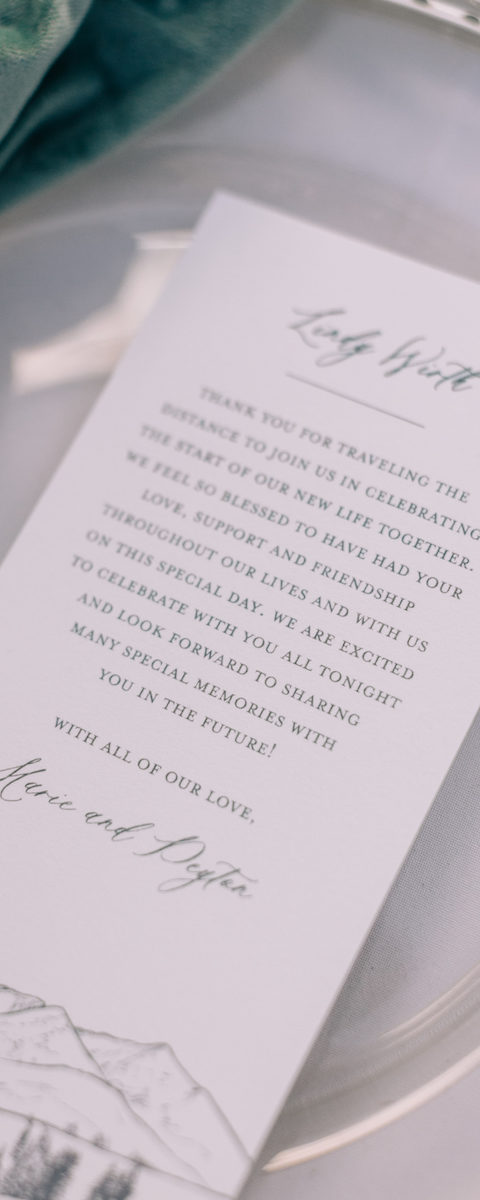 Lindy Wirth
THANK YOU FOR TRAVELING THE
DISTANCE TO JOIN US IN CELEBRATING
THE START OF OUR NEW LIFE TOGETHER.
WE FEEL SO BLESSED TO HAVE HAD YOUR
LOVE, SUPPORT AND FRIENDSHIP
THROUGHOUT OUR LIVES AND WITH US
ON THIS SPECIAL DAY. WE ARE EXCITED
TO CELEBRATE WITH YOU ALL TONIGHT
AND LOOK FORWARD TO SHARING
MANY SPECIAL MEMORIES WITH
YOU IN THE FUTURE!
WITH ALL OF OUR LOVE,
Marie and Peyton